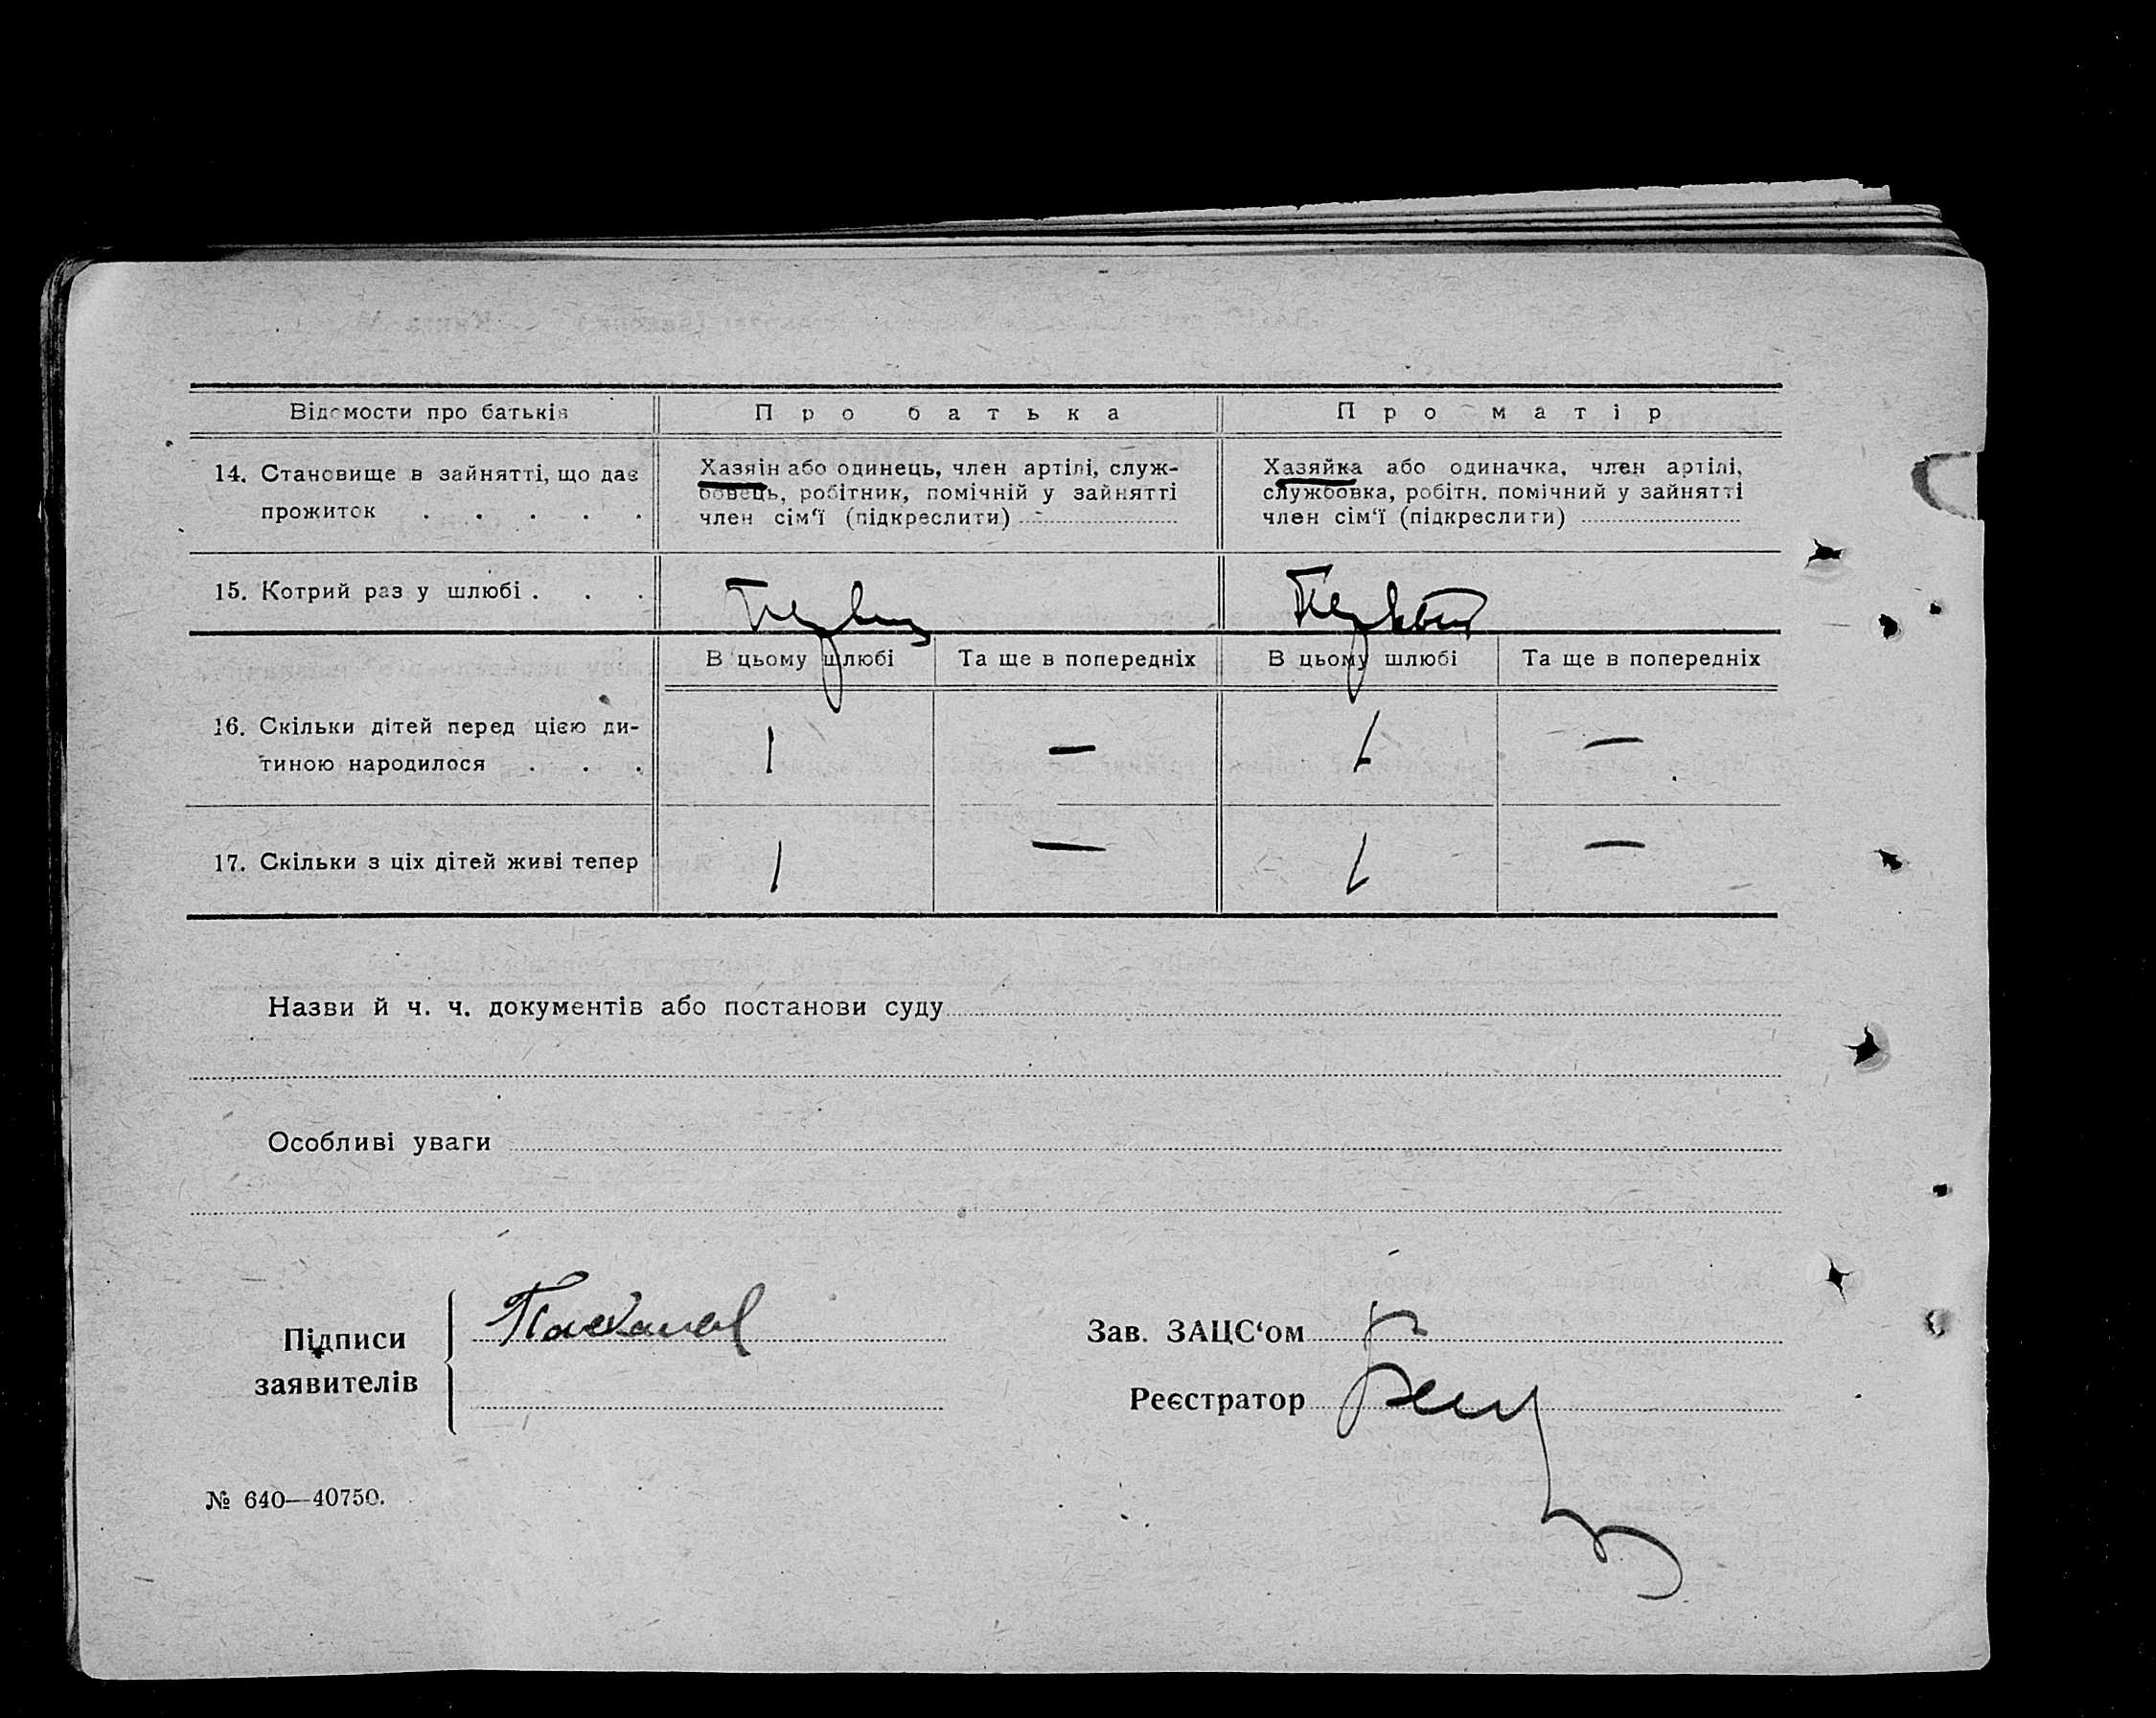 Відомости про батьків
Про батька
Про матір
14. Становище в зайнятті, що дає
прожиток . . . . .
Хазяїн або одинець, член артілі, служ-
бовець, робітник, помічній у зайнятті
член сім‘ї (підкреслити)
Хазяйка або одиначка, член артілі,
службовка, робітн. помічний у зайнятті
член сім‘ї (підкреслити)
15. Котрий раз у шлюбі . . .
В цьому шлюбі
Та ще в попередніх
В цьому шлюбі
Та ще в попередніх
16. Скільки дітей перед цією ди-
тиною народилося . . .
1 — 1 —
17. Скільки з ціх дітей живі тепер
1 — 1 —
Назви й ч. ч. документів або постанови суду
Особливі уваги
Підписи
заявителів
Зав. ЗАЦС‘ом
Реєстратор
№ 640—40750.